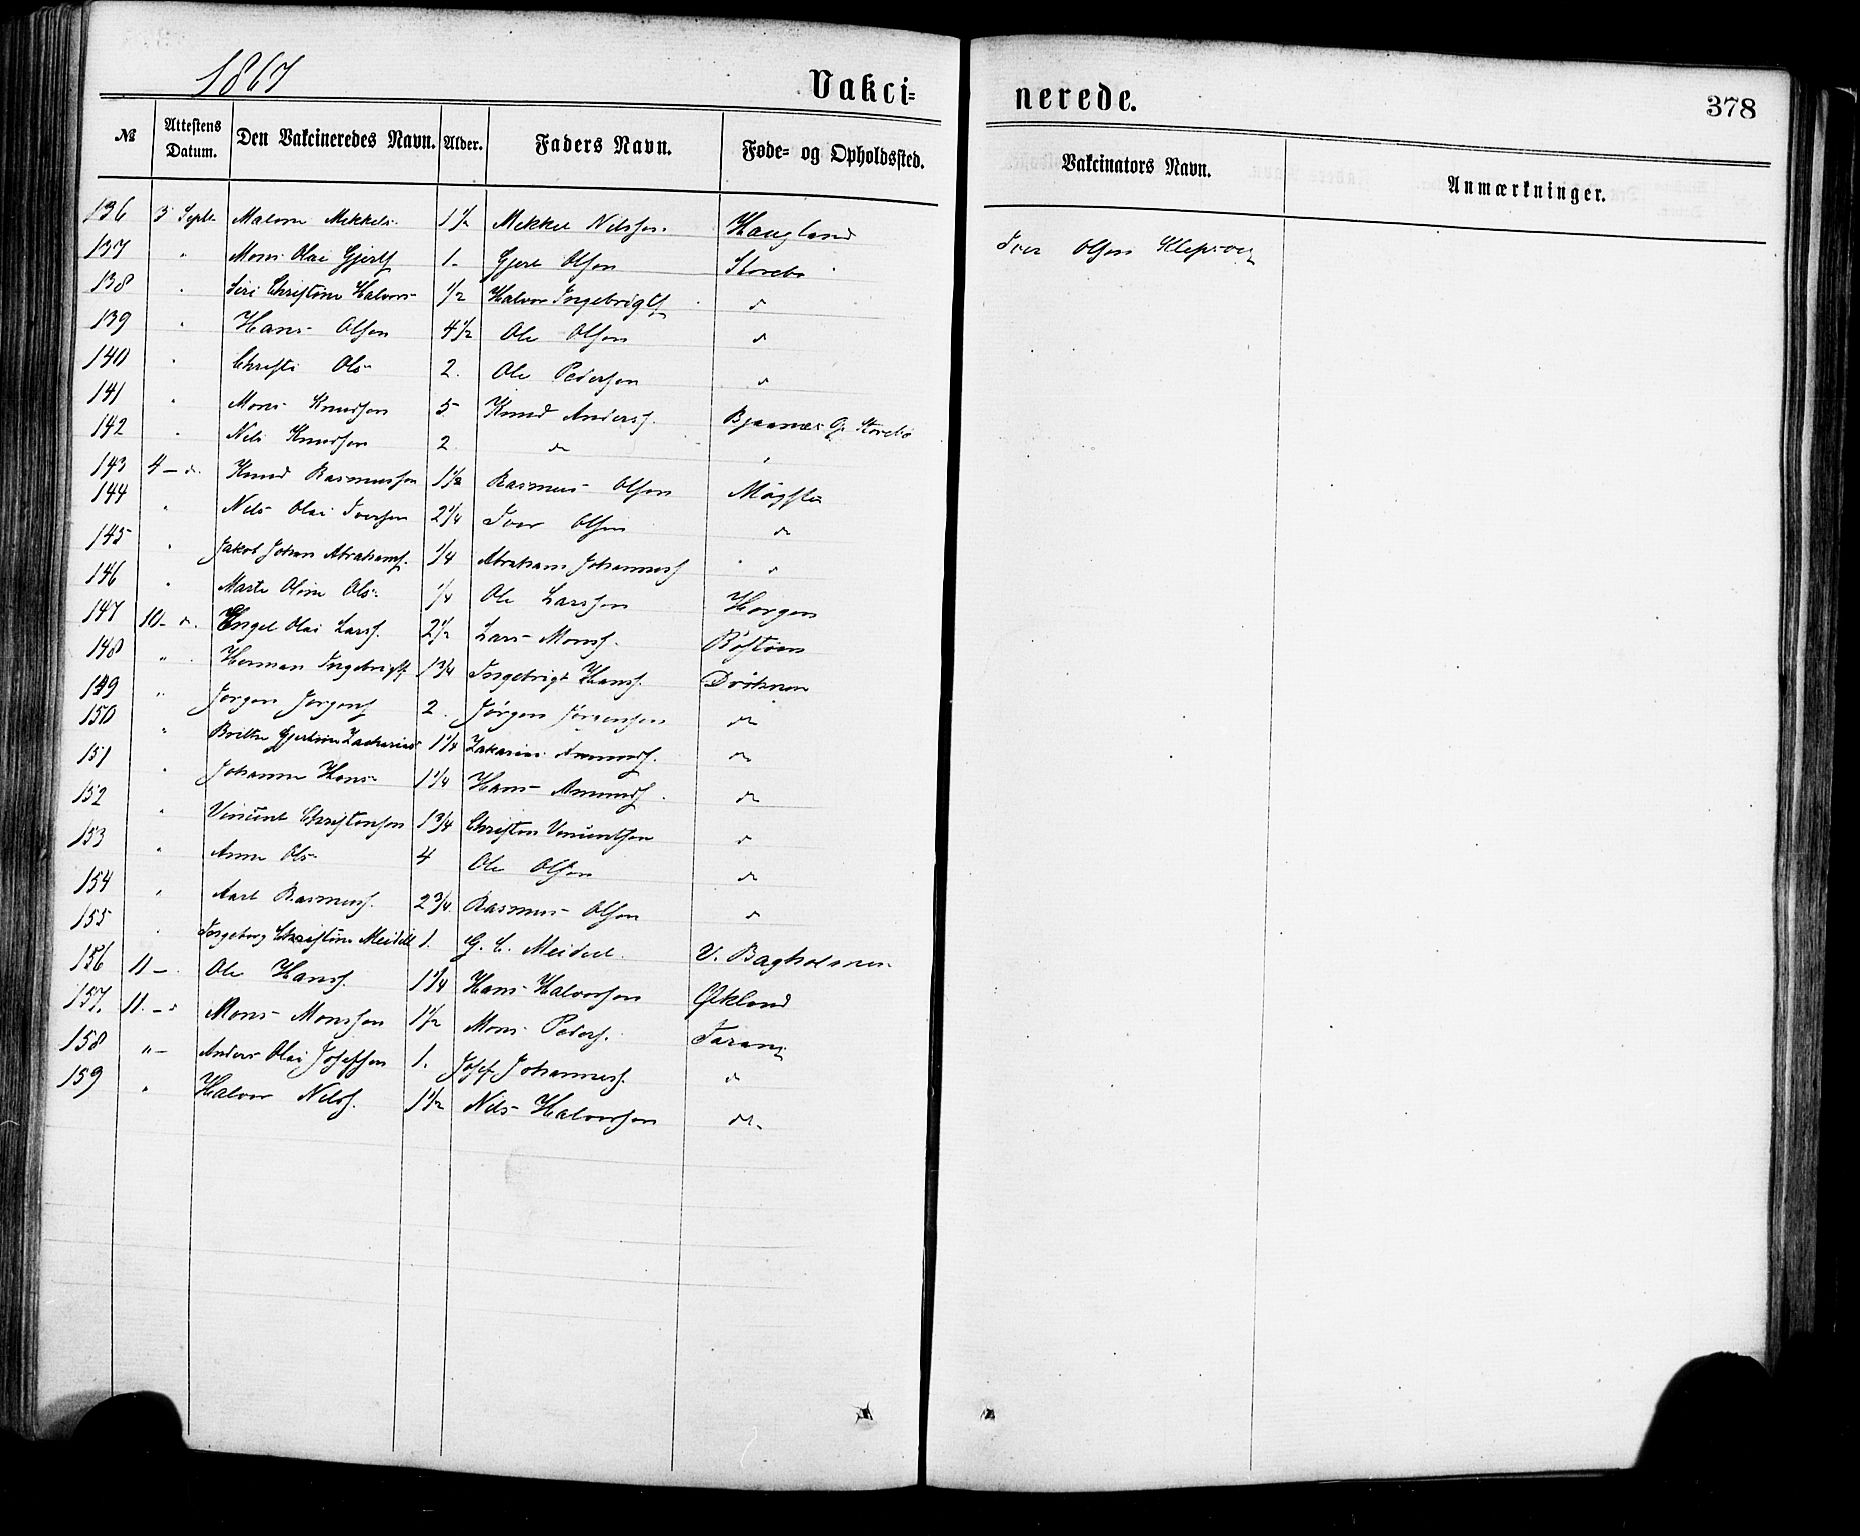 1867 Vakci=nerede. 378
№ Attestens Datum. Den Vakcineredes Navn. Alder. Faders Navn. Føde= og Opholdssted. Vakcinators Navn. Anmærkninger.
136 3 Septr Malene Mikkels- 1½ Mikkel Nilssen. Haugland
137 " Mons Olai Gjertsf 1. Gjert Olsen Storebø Iver Olsen Klepsvei
138 " Siri Christine Halvors- ½ Halvor Ingebrigtsf do
139 " Hans Olsen 4½ Ole Olsen do
140 " Christi Ols- 2. Ole Pedersen do
141 " Mons Knudsen 5 Knud Andersf. Bjaanæs Storebø
142 " Nels Knudsen 2 do "
143 4 - do. Knud Rasmussen 1½ Rasmus Olsen Møgster
144 " Nels Olai Iversen 2¼ Iver Olsen do
145 " Jakob Johan Abrahamsf. ¼ Abraham Johannesf " do
146 " Marte Oline Ols- ¼ Ole Larssen Horgen
147 10 - do. Engel Olai Larsf. 2½ Lars Monsf.
148 " Herman Ingebrigtsf 1¾ Ingebrigt Hansf. Drønen
149 " Jørgen Jørgensf 2. Jørgen Jørgensen do
150 " Gjertine Zacharias 1¼ Zakarias Amundsf. do
151 " Johanne Hans- 1¼ Hans Amundsf. do
152 " Vincent Christensen 1¾ Christen Vincentsen do
153 " Anna Ols- 4 Ole Olsen do
154 " Rasmusf. 2¾ Rasmus Olsen do
155 " Ingeborg Christine Meidell 1. G. C. Meidell. V. Bagholmen
156 11 - Ole Hansf. 1¼ Hans Halvorsen Økland
157. 11. - " Mons Monssen 1½ Mons Pedersf. Taranj
158 " - Anders Olai Josefsen 1. Josef Johannesf. do
159 " Halvor Nilsf. 1½ Nils Halvorsen do